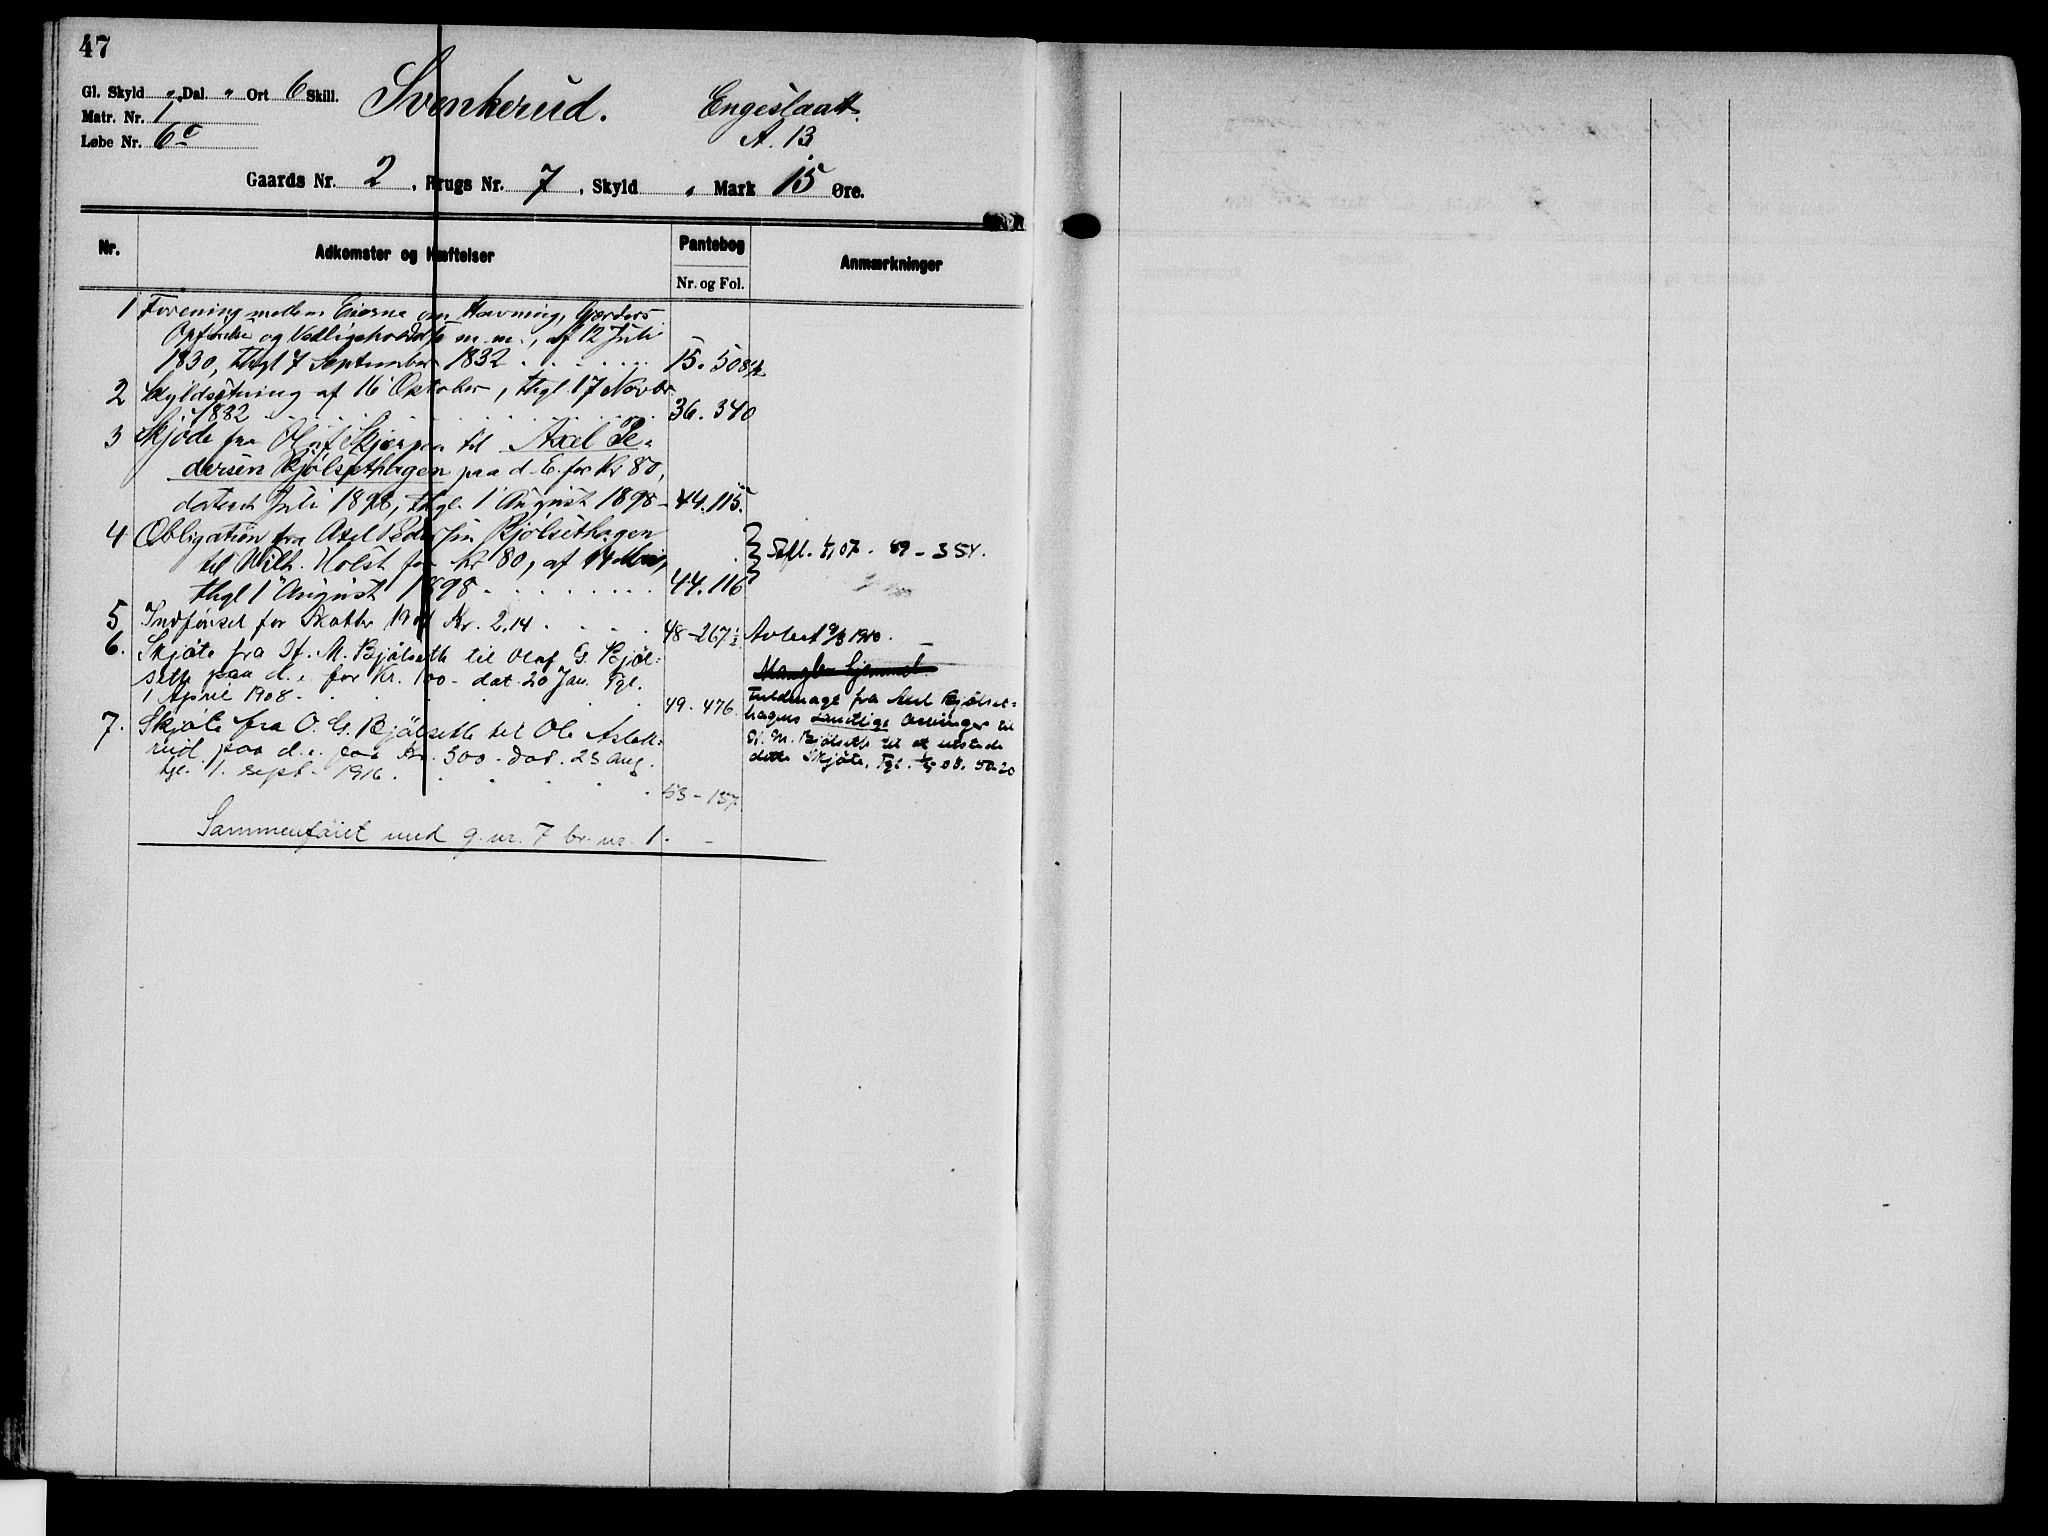 47
Gl. Skyld " Dal. " Ort 6 Skill.
Matr. Nr. 1
Løbe Nr. 6c
Svenkerud.
Engeslaatt.
A. 13
Gaards Nr. 2, Brugs Nr. 7, Skyld " Mark 15 Øre.
Nr. Adkomster og Hæftelser Pantebog Anmærkninger
Nr. og Fol.
1 Forening mellem Eierne om Havning, Gjærders
Opførelse og Vedligeholdelse m. m., af 12 Juli
1830, thgl 7 September 1832 15. 508
2 Skyldsætning af 16 Oktober, thgl 17 Novbr
1882 36. 340
3 Skjøde fra Oluf til Axel Pe-
dersen Bjølsethagen paa d. E. for Kr 80,
dateret Juli 1898, thgl. 1 August 1898 44. 115.
4 Obligation fra Axel Pedersen Bjølsethagen
til Wilh. Holst for Kr 80, af 14 Mai,
thgl 1 August 1898 44. 116
07. 49 - 354.
5 Indførsel for Skatter Kr. 2.14 48-267
Avlest 1910.
6. Skjøte fra M. Bjølseth til Olaf G. Bjøl-
seth paa d. e. for Kr. 100 - dat. 20 Jan. Tgl.
1 April 1908. 49-476.
Mangler hjemmel.
Fuldmagt fra Axel Bjølset-
hagens samtlige arvinger til
M. Bjølseth til at utstede
dette Skjøte. Tgl. 08. 50-20
7. Skjøte fra O. G. Bjølseth til Ole Aslak-
rud paa d. e. for Kr. 300. Dat. 23 aug.
tgl. 1. sept. 1916. 53-137.
Sammenføiet med g. nr. 7 br. nr. 1.